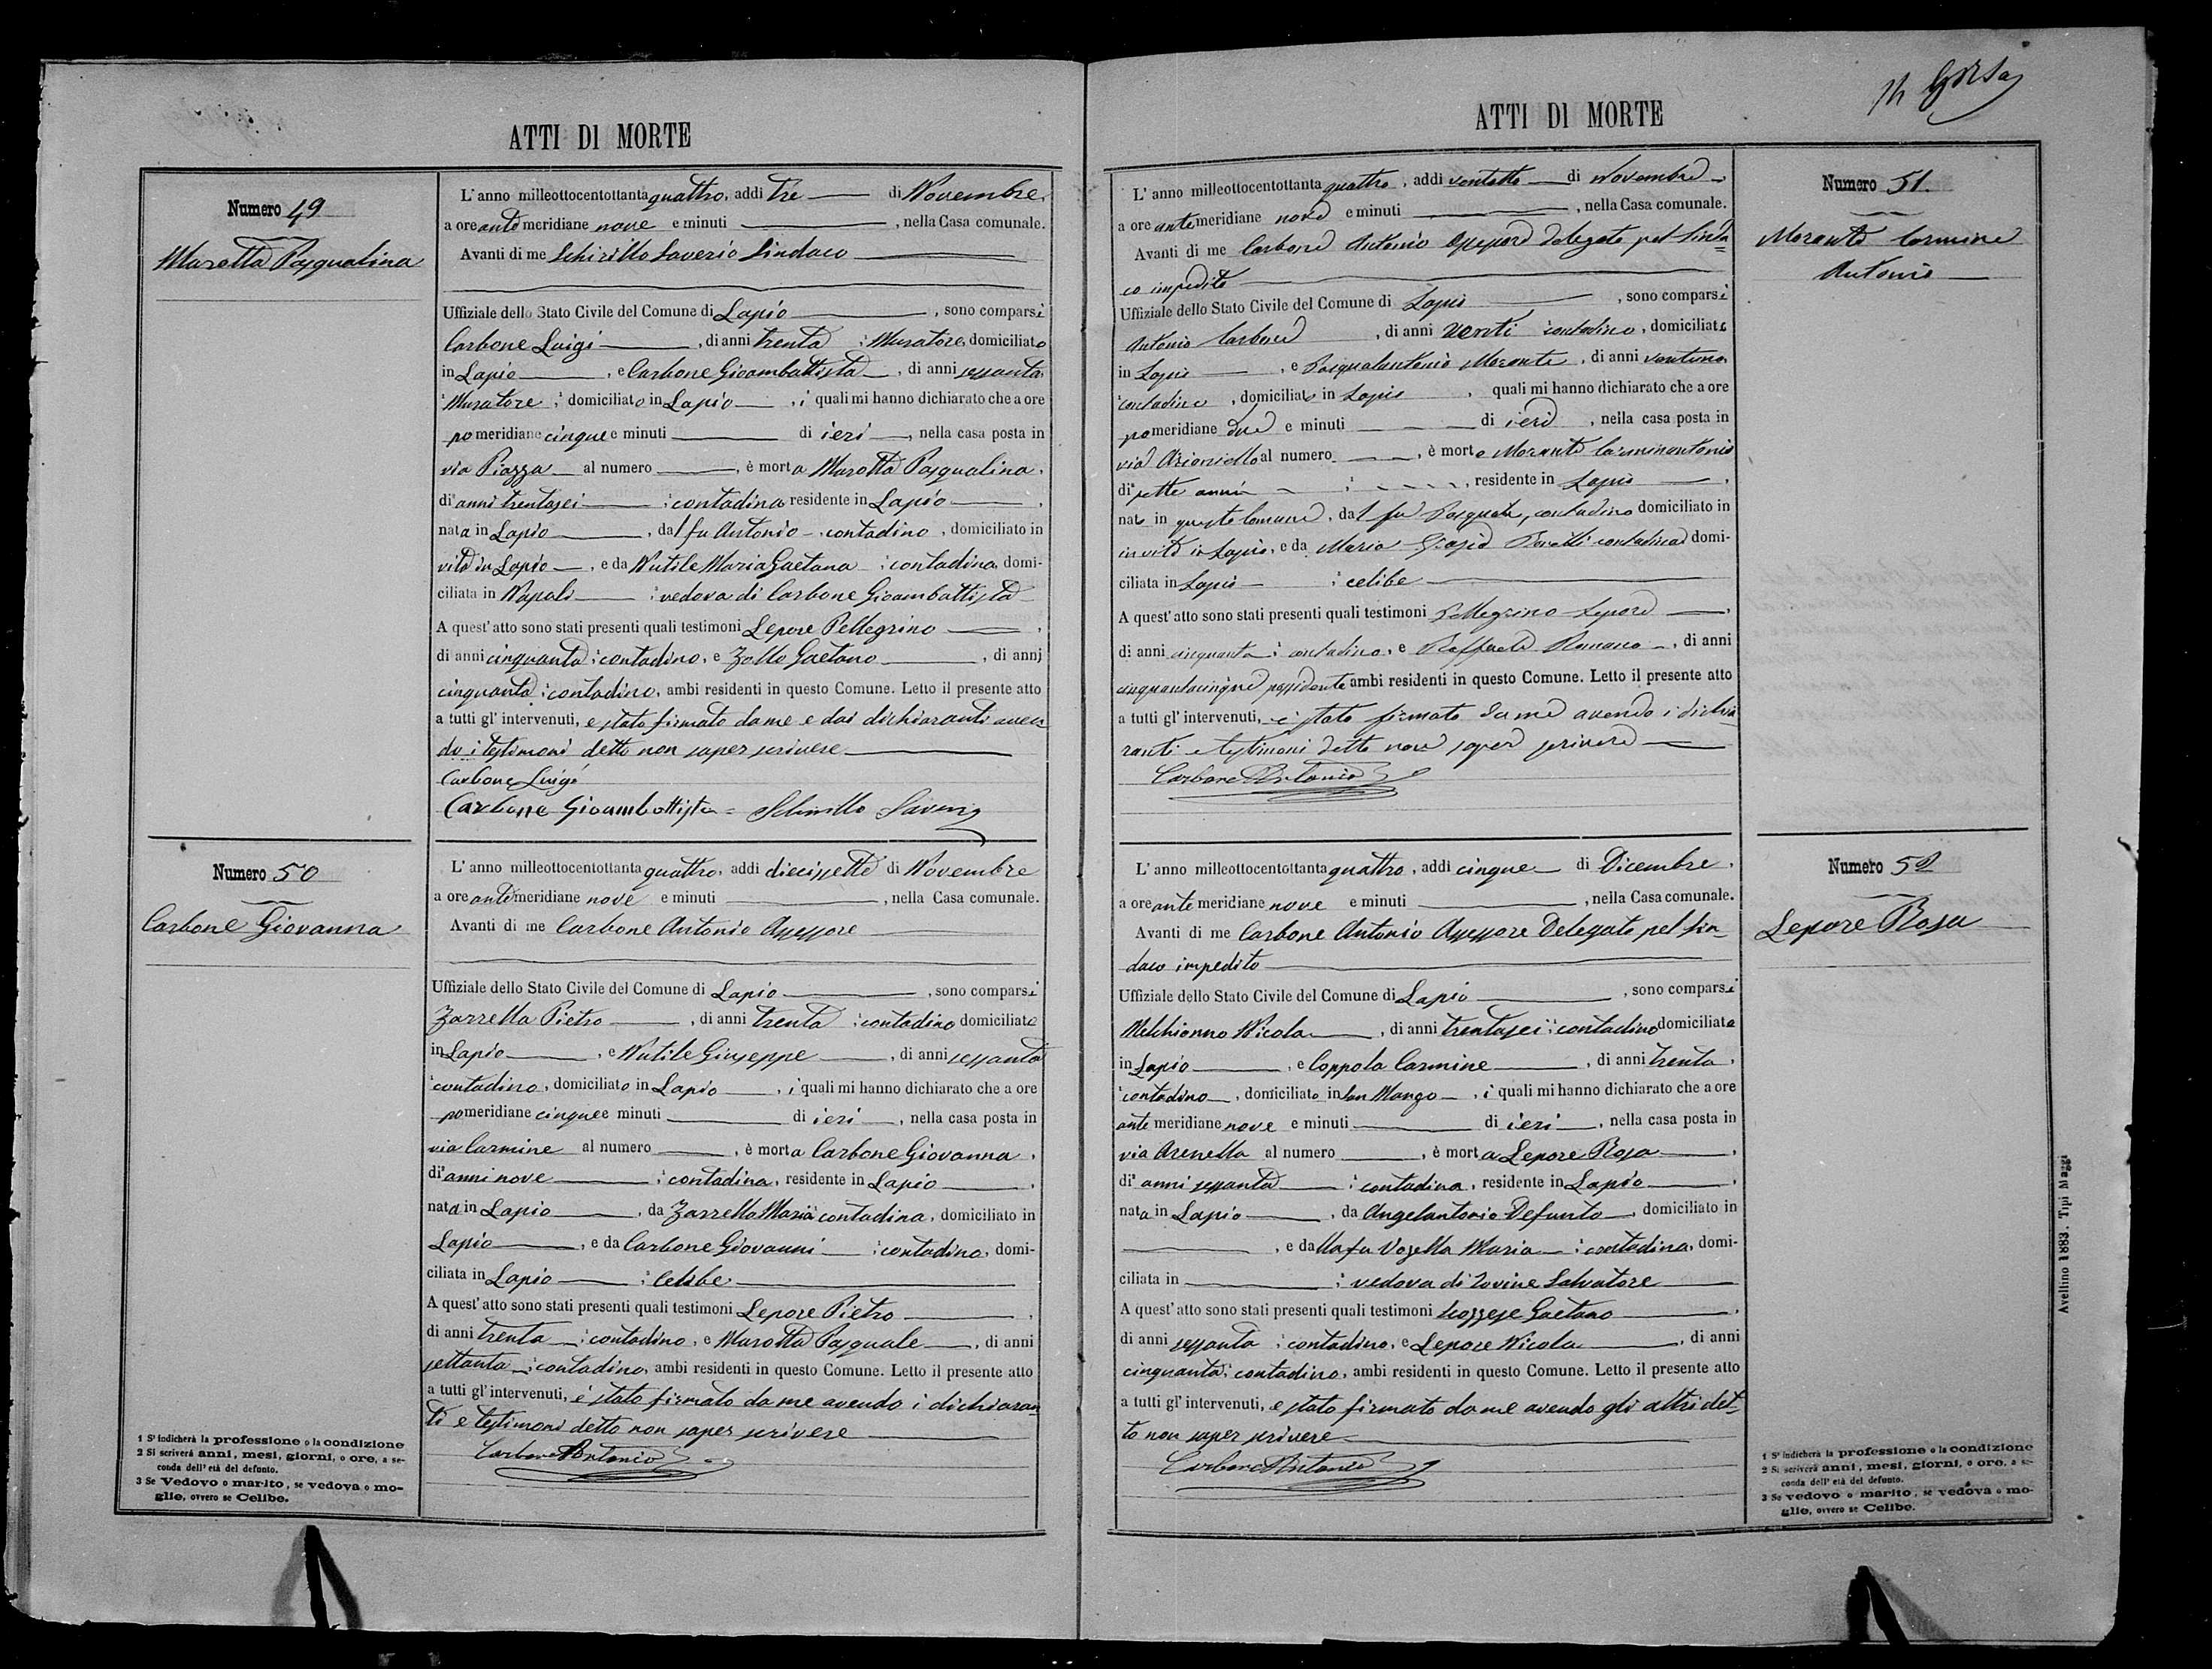 ATTI DI MORTE
Numero 49
Marotta Pasqualina
L'anno milleottocentottantaquattro, addì tre di Novembre,
a ore antemeridiane nove e minuti , nella Casa comunale.
Avanti di me Schirillo Saverio Sindaco
Uffiziale dello Stato Civile del Comune di Lapio , sono comparsi
Carbone Luigi , di anni trenta , Muratore, domiciliato
in Lapio , e Carbone Gioambattista , di anni sessanta,
Muratore, domiciliato in Lapio , i quali mi hanno dichiarato che a ore
pomeridiane cinque e minuti di ieri , nella casa posta in
via Piazza al numero , è morta Marotta Pasqualina,
di anni trentasei , contadina residente in Lapio ,
nata in Lapio , dal fu Antonio , contadino , domiciliato in
vita in Lapio , e da Nutile Maria Gaetana , contadina, domi-
ciliata in Napoli , vedova di Carbone Gioambattista
A quest'atto sono stati presenti quali testimoni Lepore Pellegrino ,
di anni cinquanta, contadino, e Zollo Gaetano , di anni
cinquanta, contadino, ambi residenti in questo Comune. Letto il presente atto
a tutti gl'intervenuti, è stato firmato da me e dai dichiaranti aven
do i testimoni detto non saper scrivere
Carbone Luigi
Carbone Gioambattista = Schirillo Saverio
Numero 50
Carbone Giovanna
L'anno milleottocentottantaquattro, addì diecissette di Novembre
a ore antemeridiane nove e minuti , nella Casa comunale.
Avanti di me Carbone Antonio Assessore
Uffiziale dello Stato Civile del Comune di Lapio , sono comparsi
Zarrella Pietro , di anni trenta , contadino domiciliato
in Lapio , e Nutile Giuseppe , di anni sessanta
contadino, domiciliato in Lapio , i quali mi hanno dichiarato che a ore
pomeridiane cinque e minuti di ieri , nella casa posta in
via Carmine al numero , è morta Carbone Giovanna,
di anni nove , contadina, residente in Lapio ,
nata in Lapio , da Zarrella Maria contadina, domiciliato in
Lapio , e da Carbone Giovanni , contadino, domi-
ciliata in Lapio , Celibe
A quest'atto sono stati presenti quali testimoni Lepore Pietro ,
di anni trenta , contadino, e Marotta Pasquale , di anni
settanta , contadino, ambi residenti in questo Comune. Letto il presente atto
a tutti gl'intervenuti, è stato firmato da me avendo i dichiaran
ti e testimoni detto non saper scrivere
Carbone Antonio
1 S'indicherà la professione o la condizione
2 Si scriverà anni, mesi, giorni, o ore, a se-
conda dell'età del defunto.
3 Se Vedovo o marito, se vedova o mo-
glie, ovvero se Celibe.
ATTI DI MORTE
Numero 51
Morante Carmine
Antonio
L'anno milleottocentottantaquattro, addì ventotto di Novembre
a ore antemeridiane nove e minuti , nella Casa comunale.
Avanti di me Carbone Antonio Assessore delegato pel Sinda
co impedito
Uffiziale dello Stato Civile del Comune di Lapio , sono comparsi
Antonio Carbone , di anni venti contadino, domiciliato
in Lapio , e Pasqualantonio Morante , di anni ventuno
contadino , domiciliato in Lapio , quali mi hanno dichiarato che a ore
pomeridiane due e minuti di ieri , nella casa posta in
via al numero , è morto Morante Carminantonio
di sette anni , residente in Lapio ,
nato in questo Comune, dal fu Pasquale, contadino domiciliato in
in vita in Lapio, e da Maria Grazia contadina domi-
ciliata in Lapio , celibe
A quest'atto sono stati presenti quali testimoni Pellegrino Lepore ,
di anni cinquanta, contadino, e Raffaele Romano , di anni
cinquantacinque possidente ambi residenti in questo Comune. Letto il presente atto
a tutti gl'intervenuti, è stato firmato da me avendo i dichia
ranti e testimoni detto non saper scrivere
Carbone Antonio
Numero 52
Lepore Rosa
L'anno milleottocentottantaquattro, addì cinque di Dicembre,
a ore antemeridiane nove e minuti , nella Casa comunale.
Avanti di me Carbone Antonio Assessore Delegato pel Sin
daco impedito
Uffiziale dello Stato Civile del Comune di Lapio , sono comparsi
Melchionno Nicola , di anni trentasei, contadino domiciliato
in Lapio , e Coppola Carmine , di anni trenta,
contadino , domiciliato in San Mango , i quali mi hanno dichiarato che a ore
antemeridiane nove e minuti di ieri , nella casa posta in
via Arenella al numero , è morta Lepore Rosa ,
di anni sessanta , contadina, residente in Lapio ,
nata in Lapio , da Angelantonio Defunto , domiciliato in
, e dalla fu Vozella Maria , contadina, domi-
ciliata in , vedova di Iovine Salvatore
A quest'atto sono stati presenti quali testimoni Gaetano ,
di anni sessanta , contadino, e Lepore Nicola , di anni
cinquanta, contadino, ambi residenti in questo Comune. Letto il presente atto
a tutti gl'intervenuti, è stato firmato da me avendo gli altri det
to non saper scrivere
Carbone Antonio
1 S'indicherà la professione o la condizione
2 Si scriverà anni, mesi, giorni, o ore, a se-
conda dell'età del defunto.
3 Se vedovo o marito, se vedova o mo-
glie, ovvero se Celibe.
Avellino 1883. Tipi Maggi